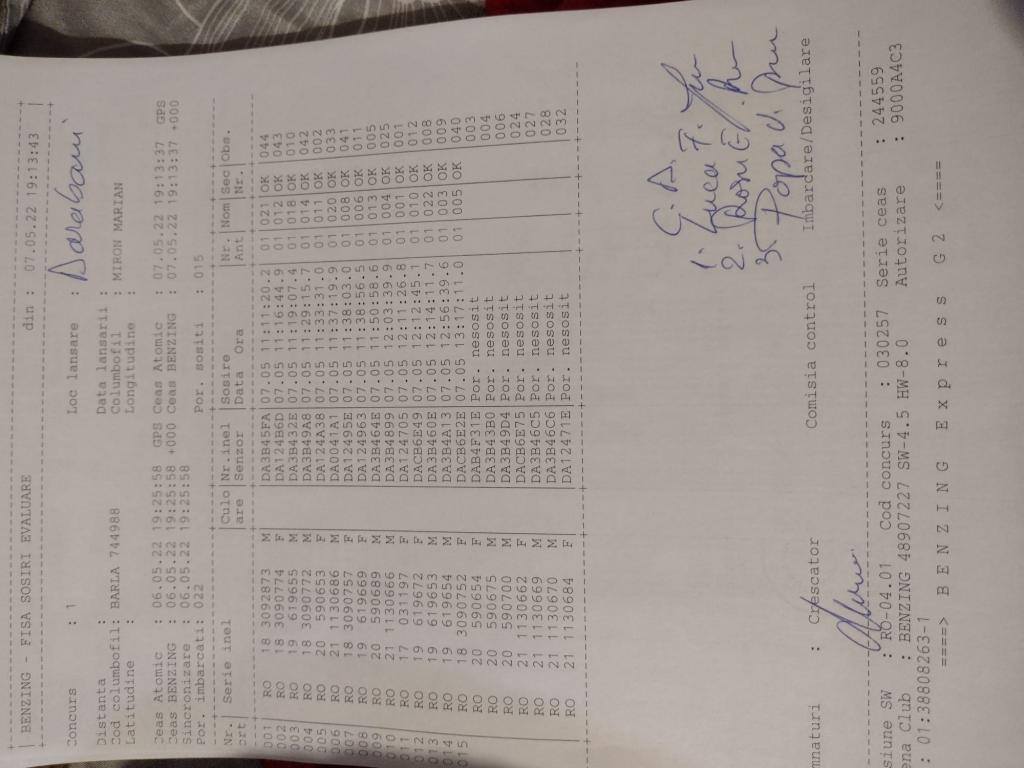 BENZING - FISA SOSIRI EVALUARE din : 07.05.22 19:13:43
Concurs : 1 Loc lansare : Darabani
Distanta : Data lansarii :
Cod columbofil: BARLA 744988 Columbofil : MIRON MARIAN
Latitudine : Longitudine :
Ceas Atomic : 06.05.22 19:25:58 GPS Ceas Atomic : 07.05.22 19:13:37 GPS
Ceas BENZING : 06.05.22 19:25:58 +000 Ceas BENZING : 07.05.22 19:13:37 +000
Sincronizare : 06.05.22 19:25:58
Por. imbarcati: 022 Por. sositi : 015
Nr. Serie inel Culo Nr.inel Sosire Nr. Nom Sec Obs.
crt are Senzor Data Ora Ant Nr. Nr.
001 RO 18 3092873 M DA3B45FA 07.05 11:11:20.2 01 021 OK 044
002 RO 18 3090774 F DA124B6D 07.05 11:16:44.9 01 012 OK 043
003 RO 19 619655 M DA3B432E 07.05 11:19:07.4 01 018 OK 010
004 RO 18 3090772 M DA3B49A8 07.05 11:29:15.7 01 014 OK 042
005 RO 20 590553 F DA124A38 07.05 11:33:31.0 01 011 OK 002
006 RO 21 1130686 M DA0041A1 07.05 11:37:19.9 01 020 OK 033
007 RO 18 3090757 F DA12495E 07.05 11:38:03.0 01 008 OK 041
008 RO 19 619669 F DA124963 07.05 11:38:56.5 01 006 OK 011
009 RO 20 590689 M DA3B464E 07.05 11:50:58.6 01 013 OK 005
010 RO 21 1130666 M DA3B4899 07.05 12:03:39.9 01 004 OK 025
011 RO 17 031197 F DA124705 07.05 12:11:26.8 01 001 OK 001
012 RO 19 619672 F DACB6E49 07.05 12:12:45.1 01 010 OK 012
013 RO 19 619653 M DA3B460E 07.05 12:14:11.7 01 022 OK 008
014 RO 19 619654 M DA3B4A13 07.05 12:56:39.6 01 003 OK 009
015 RO 18 3090752 F DACB6E2E 07.05 13:17:11.0 01 005 OK 040
RO 20 590654 F DAB4F31E Por. nesosit 003
RO 20 590675 M DA3B43B0 Por. nesosit 004
RO 20 590700 M DA3B49D4 Por. nesosit 006
RO 21 1130662 F DACB6E75 Por. nesosit 024
RO 21 1130669 M DA3B46C5 Por. nesosit 027
RO 21 1130670 M DA3B46C6 Por. nesosit 028
RO 21 1130684 F DA12471E Por. nesosit 032
C. A.
1. Luca F.
2.
3. Popa D.
mnaturi : Crescator Comisia control Imbardare/Desigilare
siune SW : RO-04.01 Cod concurs : 030257 Serie ceas : 244559
ena Club : BENZING 48907227 SW-4.5 HW-8.0 Autorizare : 9000A4C3
: 01:38808263-1
====> B E N Z I N G  E x p r e s s  G 2 <====